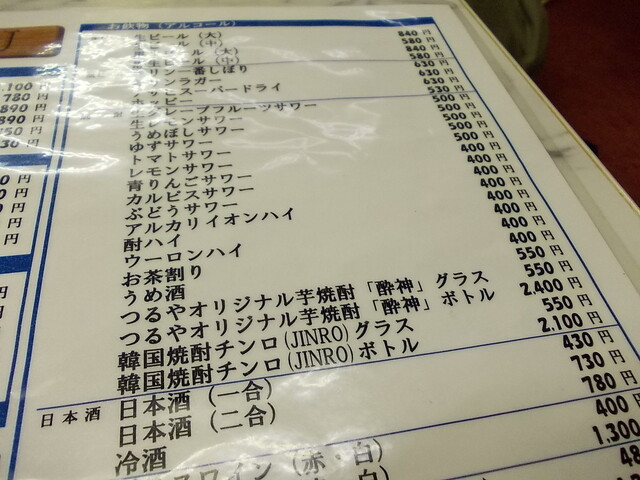 お飲物(アルコール)
生ビール(大) 840円
生ビール(中) 580円
ビール(大) 840円
ビール(中) 580円
キリン一番しぼり 630円
ラガー 630円
スーパードライ 630円
ホッピー 530円
生グレープフルーツサワー 500円
生レモンサワー 500円
うめぼしサワー 500円
ゆずサワー 500円
トマトサワー 500円
レモンサワー 400円
青りんごサワー 400円
カルピスサワー 400円
ぶどうサワー 400円
アルカリイオンハイ 400円
酎ハイ 400円
ウーロンハイ 400円
お茶割り 400円
うめ酒 550円
つるやオリジナル芋焼酎「酔神」グラス 550円
つるやオリジナル芋焼酎「酔神」ボトル 2,400円
韓国焼酎チンロ(JINRO)グラス 550円
韓国焼酎チンロ(JINRO)ボトル 2,100円
日本酒 日本酒(一合) 430円
日本酒(二合) 730円
冷酒 780円
スワイン(赤・白) 400円
1,300